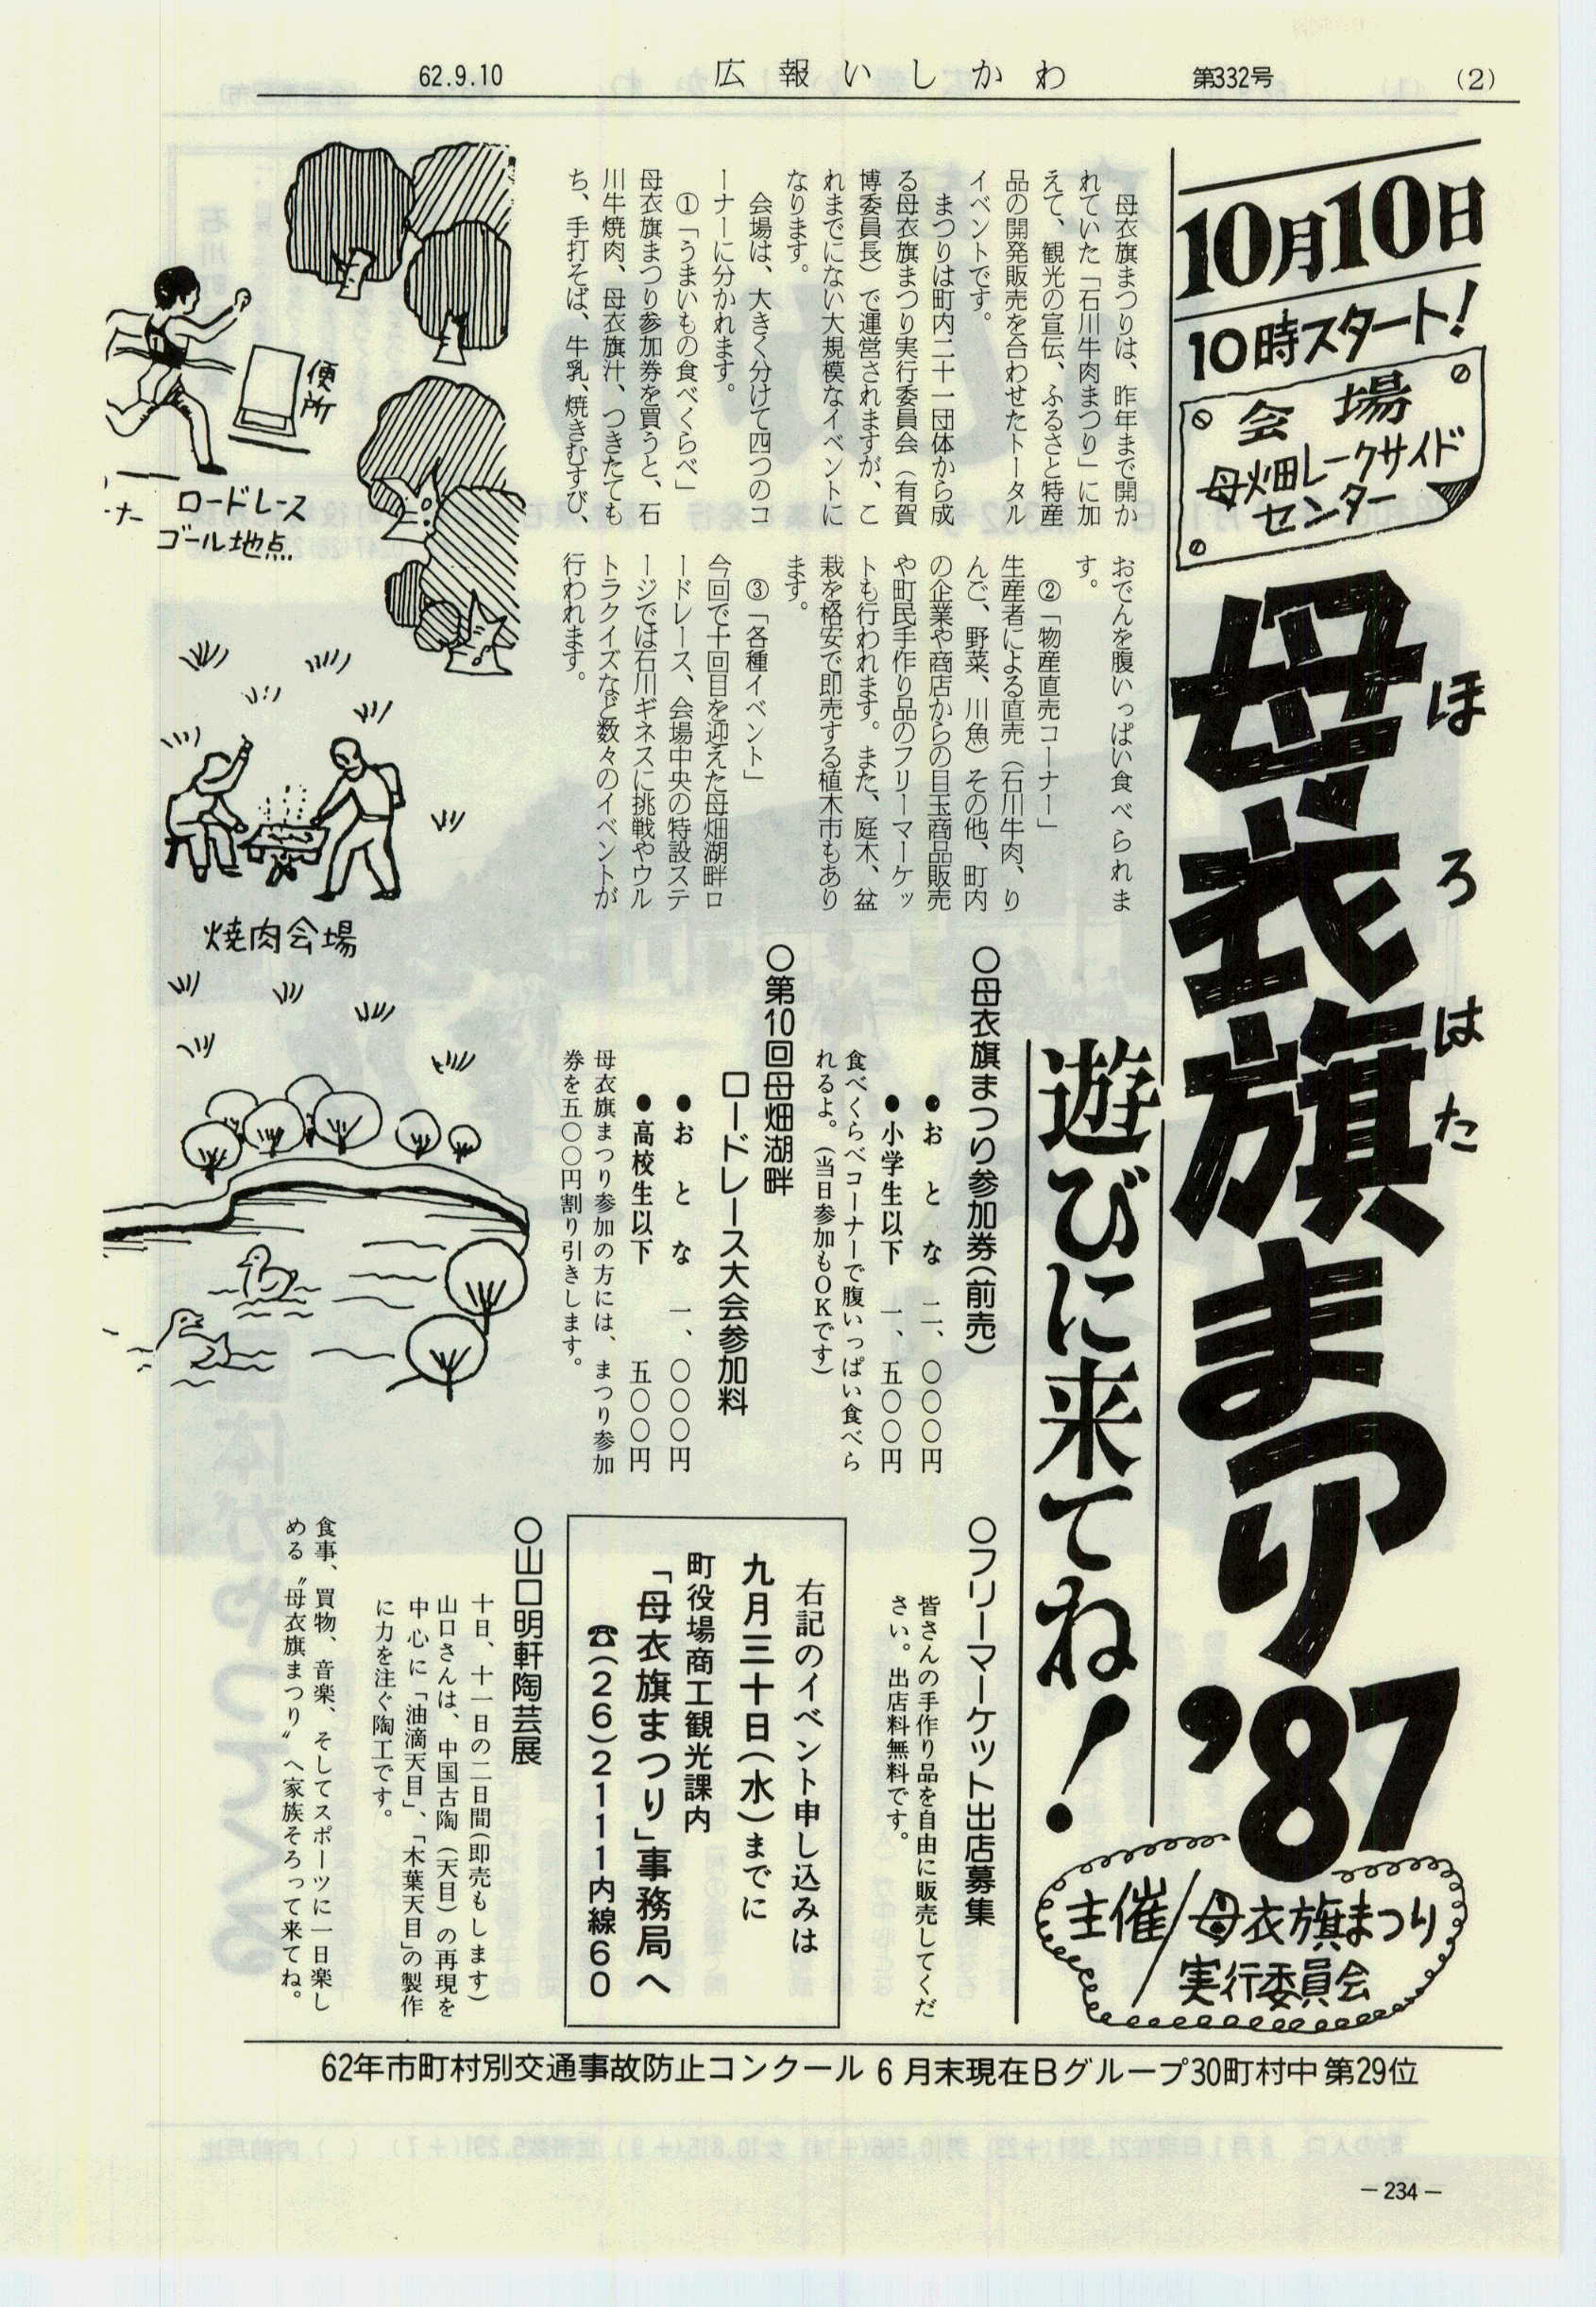 62.9.10
広報いしかわ
第332号
(2)
10月10日
10時スタート!
会場
母畑レークサイド
センター
母衣旗まつり'87
ほろはた
遊びに来てね!
主催/母衣旗まつり
実行委員会
母衣旗まつりは、昨年まで開か
れていた「石川牛肉まつり」に加
えて、観光の宣伝、ふるさと特産
品の開発販売を合わせたトータル
イベントです。
まつりは町内二十一団体から成
る母衣旗まつり実行委員会(有賀
博委員長)で運営されますが、こ
れまでにない大規模なイベントに
なります。
会場は、大きく分けて四つのコ
ーナーに分かれます。
①「うまいもの食べくらべ」
母衣旗まつり参加券を買うと、石
川牛焼肉、母衣旗汁、つきたても
ち、手打そば、牛乳、焼きむすび、
おでんを腹いっぱい食べられま
す。
②「物産直売コーナー」
生産者による直売(石川牛肉、り
んご、野菜、川魚)その他、町内
の企業や商店からの目玉商品販売
や町民手作り品のフリーマーケッ
トも行われます。また、庭木、盆
栽を格安で即売する植木市もあり
ます。
③「各種イベント」
今回で十回目を迎えた母畑湖畔ロ
ードレース、会場中央の特設ステ
ージでは石川ギネスに挑戦やウル
トラクイズなど数々のイベントが
行われます。
○母衣旗まつり参加券(前売)
●おとな 二、〇〇〇円
●小学生以下 一、五〇〇円
食べくらべコーナーで腹いっぱい食べら
れるよ。(当日参加もOKです)
○第10回母畑湖畔
ロードレース大会参加料
●おとな 一、〇〇〇円
●高校生以下 五〇〇円
母衣旗まつり参加の方には、まつり参加
券を五〇〇円割り引きします。
○フリーマーケット出店募集
皆さんの手作り品を自由に販売してくだ
さい。出店料無料です。
右記のイベント申し込みは
九月三十日(水)までに
町役場商工観光課内
「母衣旗まつり」事務局へ
☎(26)2111内線60
○山口明軒陶芸展
十日、十一日の二日間(即売もします)
山口さんは、中国古陶(天目)の再現を
中心に「油滴天目」、「木葉天目」の製作
に力を注ぐ陶工です。
食事、買物、音楽、そしてスポーツに一日楽し
める〝母衣旗まつり〟へ家族そろって来てね。
便所
ロードレース
ゴール地点
焼肉会場
62年市町村別交通事故防止コンクール 6月末現在Bグループ30町村中第29位
－234－